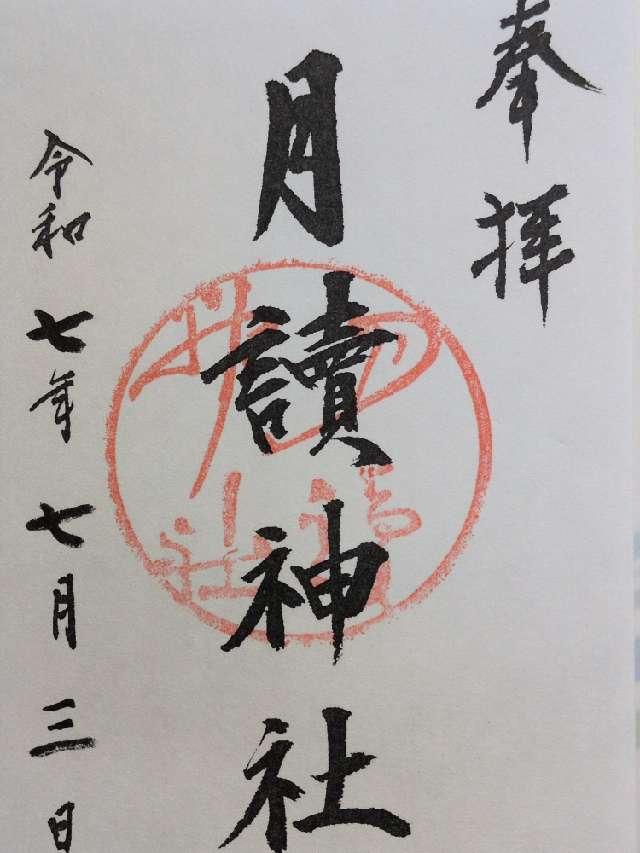 奉拝
月讀神社
令和七年七月三日